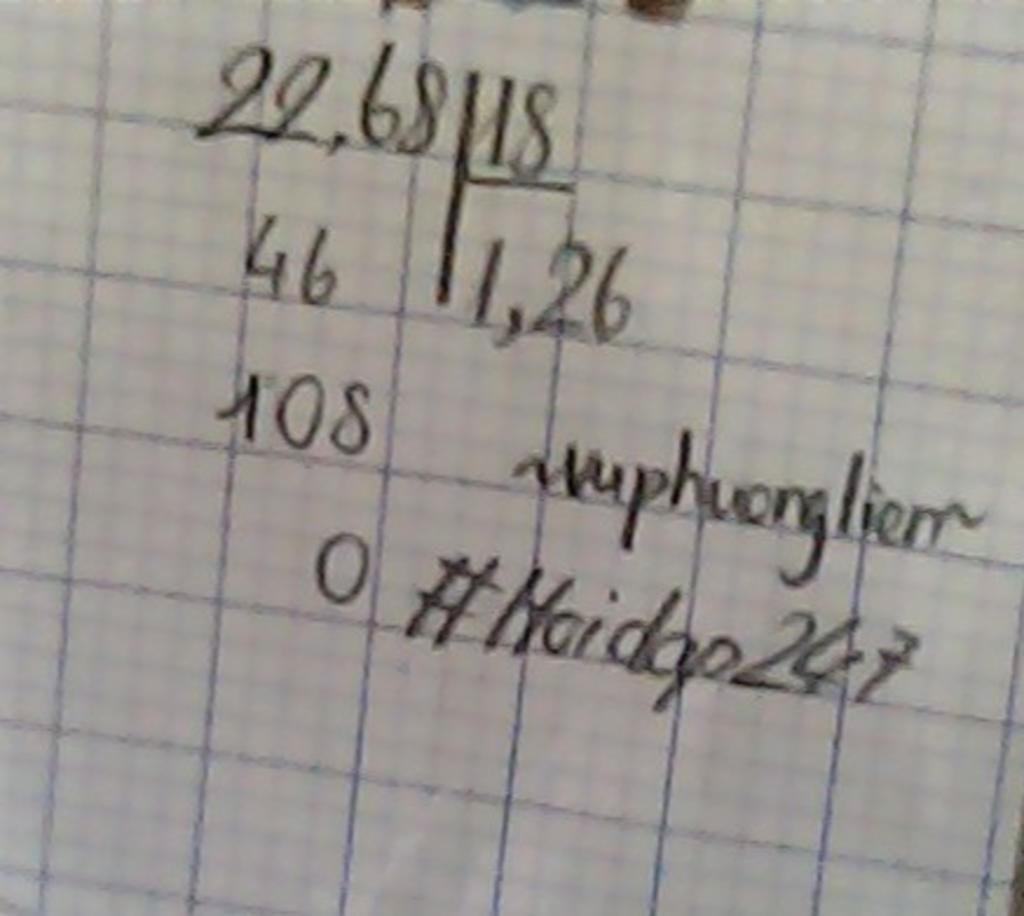 22,68 18
46 1,26
108
vuphuongliem
0 #Hoidap247